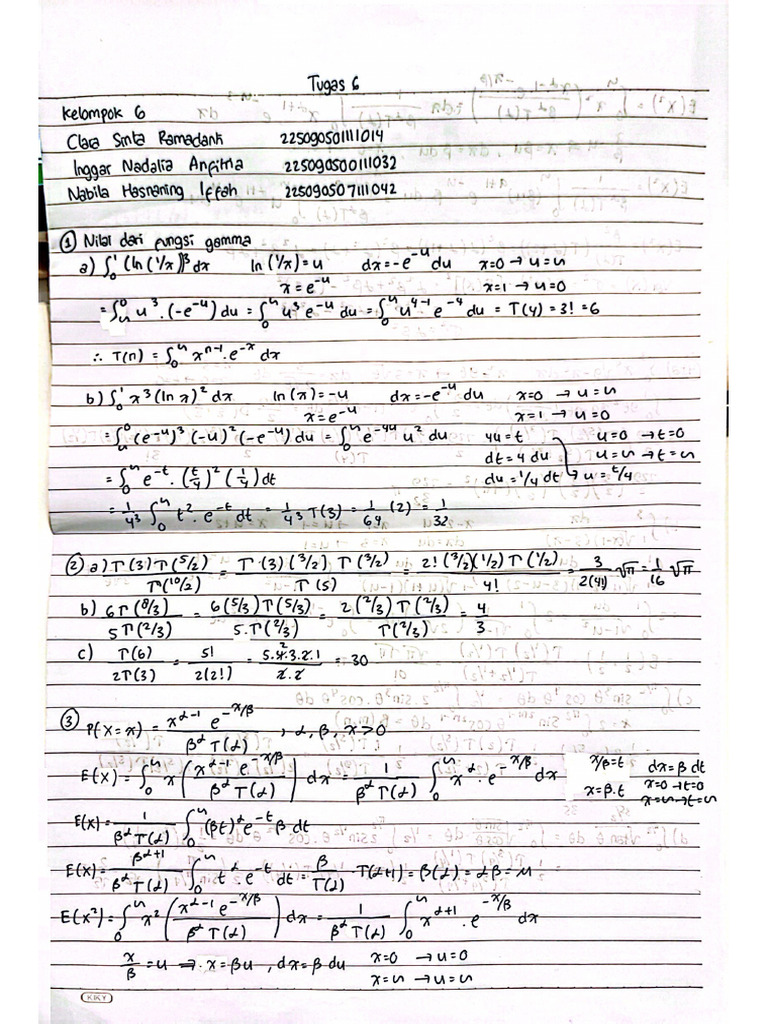 Tugas 6
Kelompok 6
Clara Sinta Ramadanti 225090501111014
Inggar Nadalia Anfitria 225090500111032
Nabila Hasnaning Iffah 225090507111042
① Nilai dari fungsi gamma
a) ∫₀¹ (ln(1/x))³ dx ln(1/x) = u dx = -e^-u du x=0 → u=∞
x = e^-u x=1 → u=0
= ∫_∞^0 u³ . (-e^-u) du = ∫_0^∞ u³ e^-u du = ∫_0^∞ u^4-1 e^-4 du = Γ(4) = 3! = 6
∴ Γ(n) = ∫_0^∞ x^n-1 . e^-x dx
b) ∫₀¹ x³ (ln x)² dx ln(x) = -u dx = -e^-u du x=0 → u=∞
x = e^-u x=1 → u=0
= ∫_∞^0 (e^-u)³ (-u)² (-e^-u) du = ∫_0^∞ e^-4u u² du 4u = t u=0 → t=0
dt = 4 du u=∞ → t=∞
= ∫_0^∞ e^-t . (t/4)² (1/4) dt du = 1/4 dt → u = t/4
= 1/4³ ∫_0^∞ t² . e^-t dt = 1/4³ Γ(3) = 1/64 (2) = 1/32
② a) Γ(3) Γ(5/2) / Γ(10/2) = Γ(3) (3/2) Γ(3/2) / Γ(5) = 2! (3/2)(1/2) Γ(1/2) / 4! = 3 / 2(4!) √π = 1/16 √π
b) 6Γ(8/3) / 5Γ(2/3) = 6(5/3) Γ(5/3) / 5.Γ(2/3) = 2(2/3) Γ(2/3) / Γ(2/3) = 4/3
c) Γ(6) / 2Γ(3) = 5! / 2(2!) = 5.4.3.2.1 / 2.2 = 30
③ P(X=x) = x^α-1 e^-x/β / β^α Γ(α) , α, β, x > 0
E(X) = ∫_0^∞ x (x^α-1 e^-x/β / β^α Γ(α)) dx = 1 / β^α Γ(α) ∫_0^∞ x^α . e^-x/β dx x/β = t dx = β dt
x = β.t x=0 → t=0
x=∞ → t=∞
E(X) = 1 / β^α Γ(α) ∫_0^∞ (βt)^α e^-t β dt
E(X) = β^α+1 / β^α Γ(α) ∫_0^∞ t^α e^-t dt = β / Γ(α) . Γ(α+1) = β(α) = αβ = μ
E(X²) = ∫_0^∞ x² (x^α-1 e^-x/β / β^α Γ(α)) dx = 1 / β^α Γ(α) ∫_0^∞ x^α+1 . e^-x/β dx
x/β = u ⇒ x = βu , dx = β du x=0 → u=0
x=∞ → u=∞
KIKY